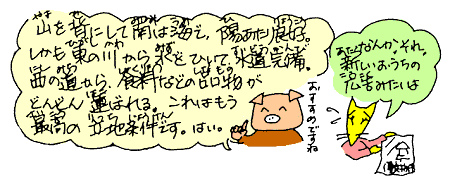 山を背にして南は海で、陽あたり良好。
しかも東の川から水をひいて、水道完備。
西の道から、食料などの品物が
どんどん運ばれる。これはもう
最高の立地条件です。はい。
おすすめですね
あたなんか、それ。
新しいおうちの
広告みたいよ